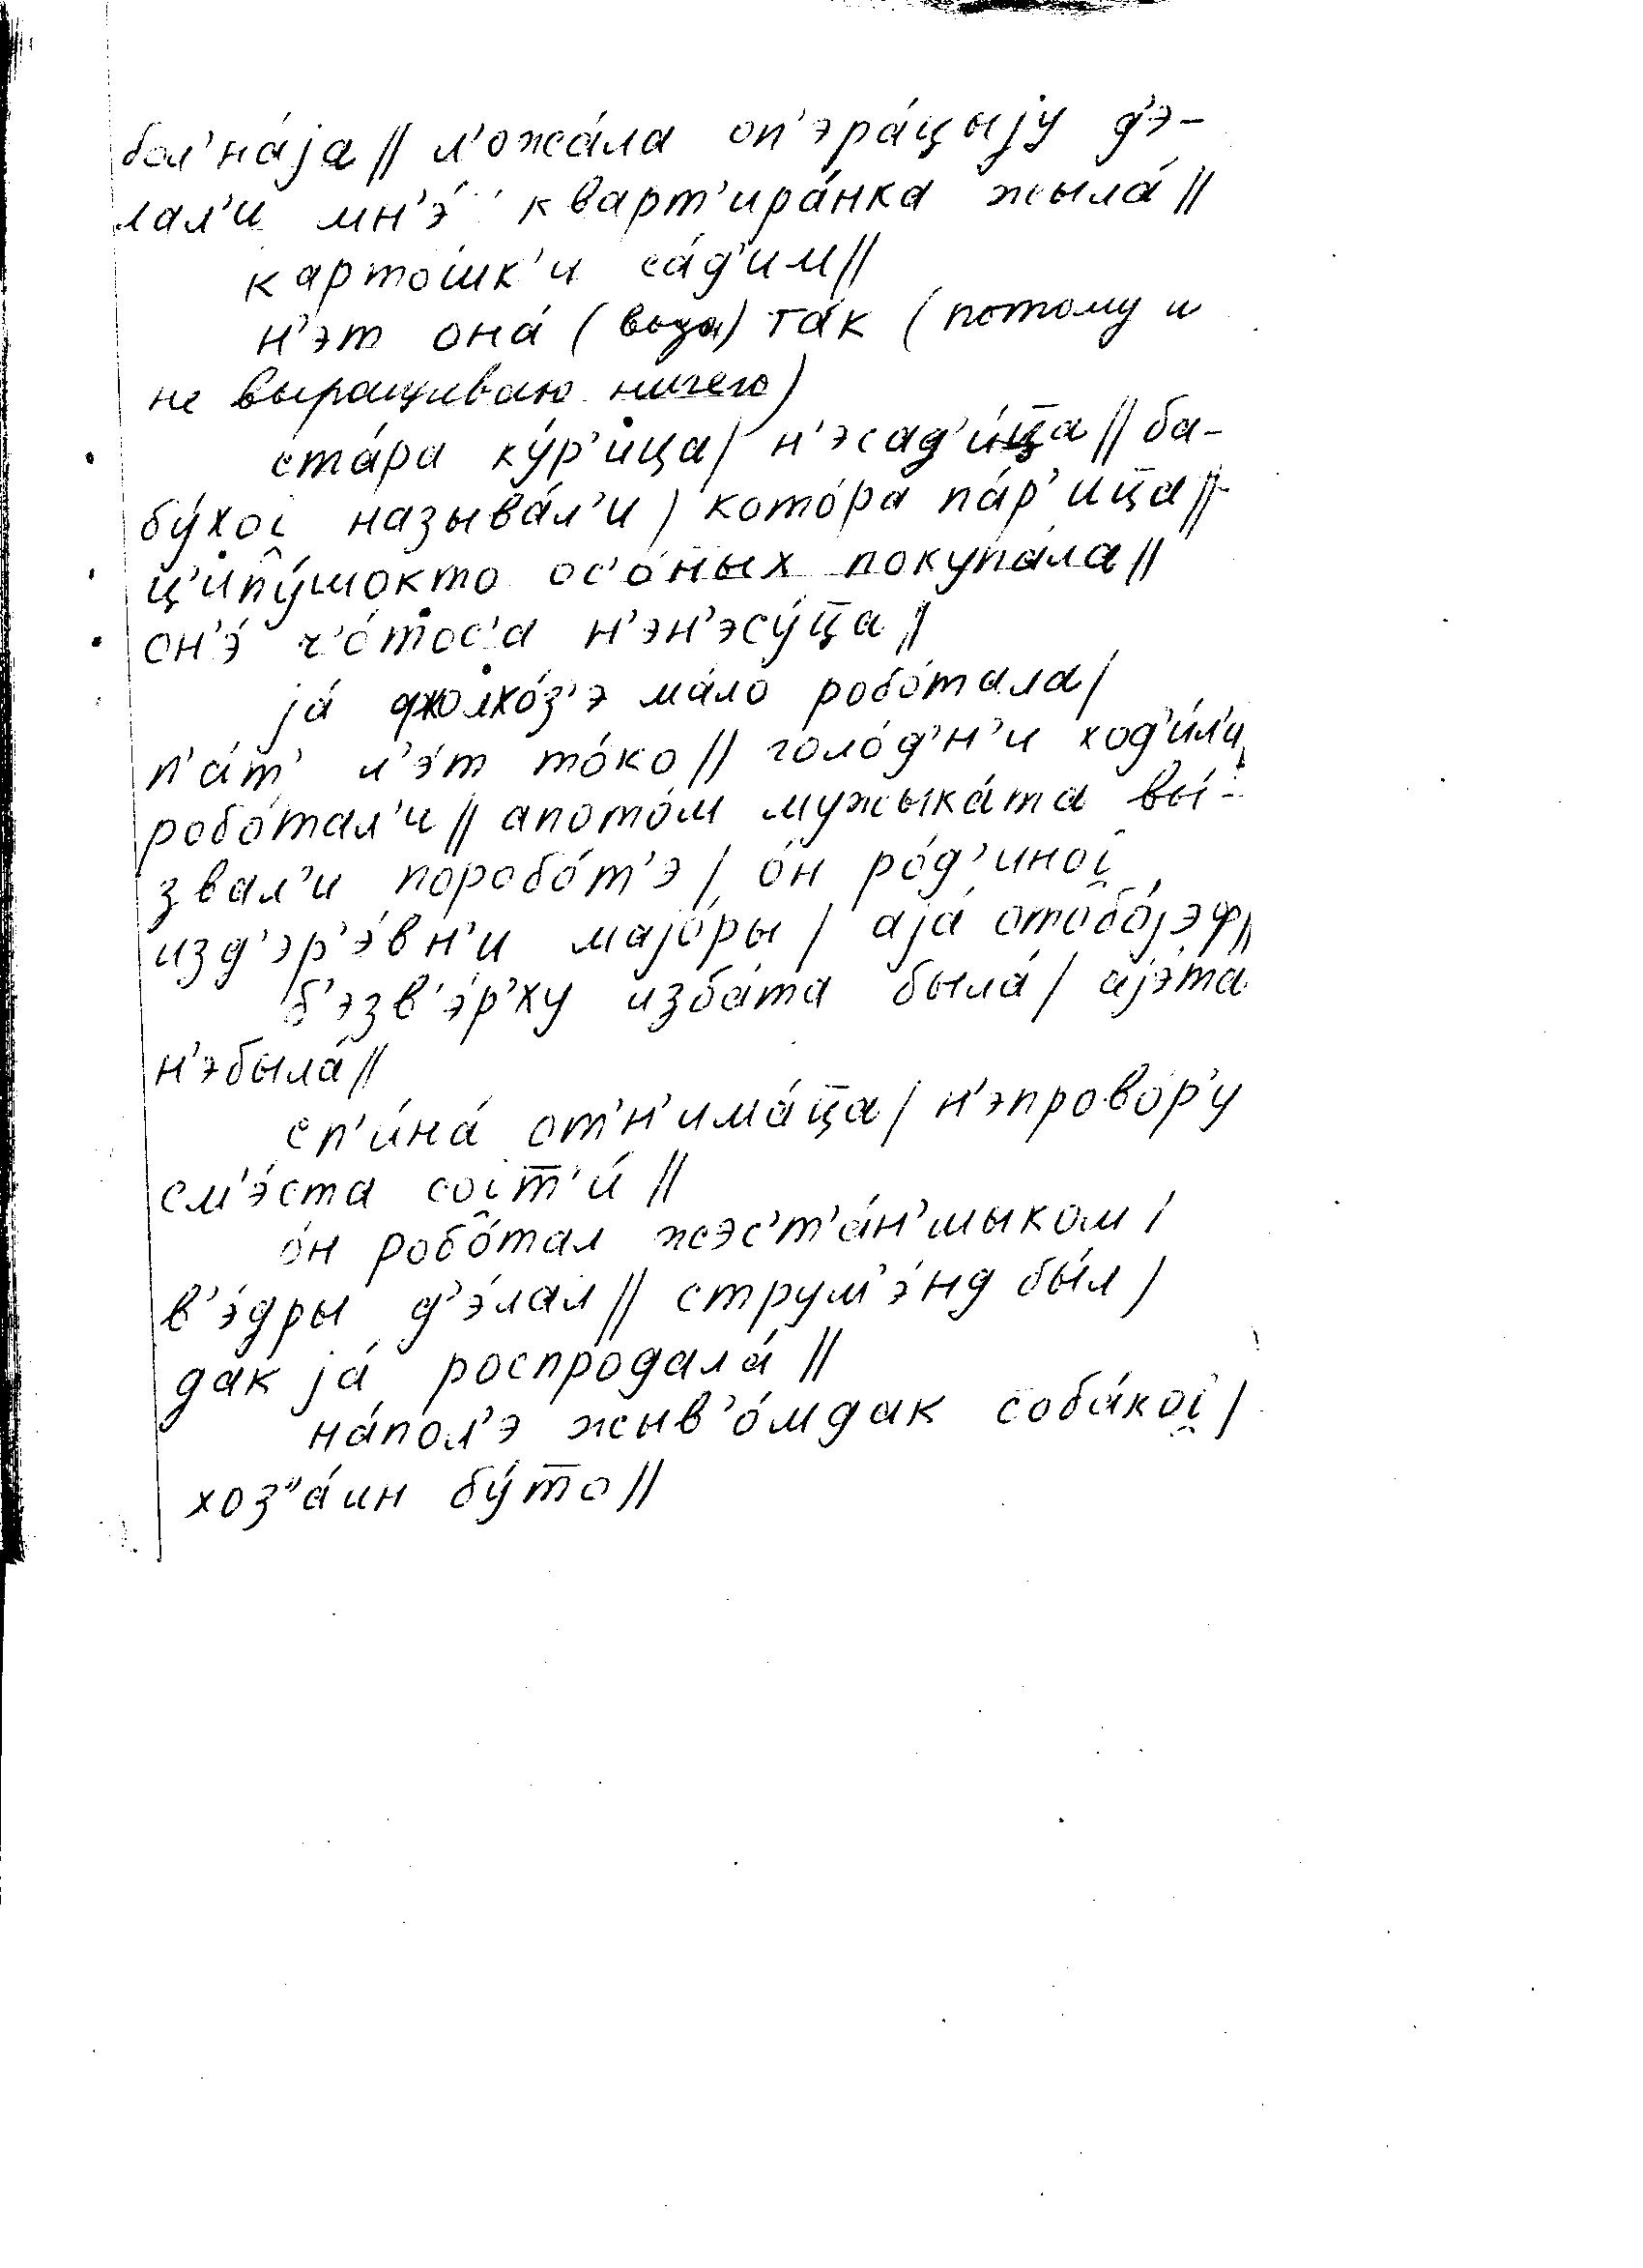 бол'на́jа // л'ожа́ла оп'эра́цыjу д'э-
лал'и мн'э́ кварт'ира́нка жыла́ //
карто́шк'и са́д'им //
н'эт она́ (вода) та́к (потому и
не выращиваю ничего)
ста́ра ку́р'ица / н'эсад'и́ц̅а // ба-
бу́хоi̯ называ́л'и / кото́ра па́р'иц̅а //
ц'ипу̂́шокто ос'о́ных покупа́ла //
он'э́ ч'о́тос'а н'эн'эсу́ц̅а //
jа́ фколхо́з'э ма́ло робо́тала /
п'а́т' л'э́т то́ко // голо́д'н'и ход'и́л'и,
робо́тал'и // апото́м мужыка́та вы́-
звал'и поробо́т'э / о́н ро́д'иноi̯
изд'эр'э́вн'и маjо́ры / аjа́ отобо̂́jэф //
б'эзв'э́р'ху изба́та была́ / аjэ́та
н'эбыла́ //
сп'и́на́ от'н'има́ц̅а / н'эпрово́р'у
см'э́ста соi̯т̅'и́ //
о́н робо̂тал жэс'т'а́н'шыком /
в'э́дры д'э́лал // струм'э́нд бы́л /
дак jа́ роспродала́ //
на́пол'э жыв'о́мдак соба́коi̯ /
хоз"а́ин бу́т̅о //